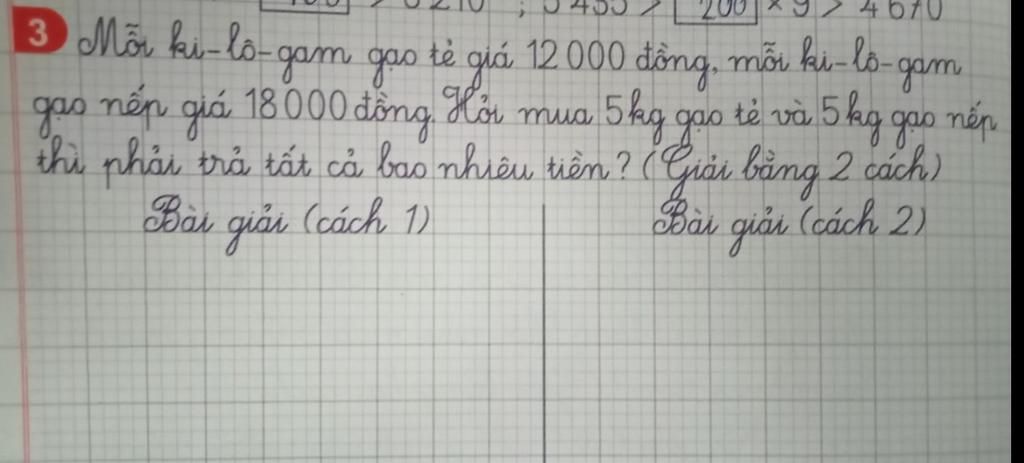 > 5210 ; 5455 > 200 × 9 > 4670
3 Mỗi ki-lô-gam gạo tẻ giá 12 000 đồng, mỗi ki-lô-gam
gạo nếp giá 18 000 đồng. Hỏi mua 5kg gạo tẻ và 5kg gạo nếp
thì phải trả tất cả bao nhiêu tiền? (Giải bằng 2 cách)
Bài giải (cách 1) Bài giải (cách 2)